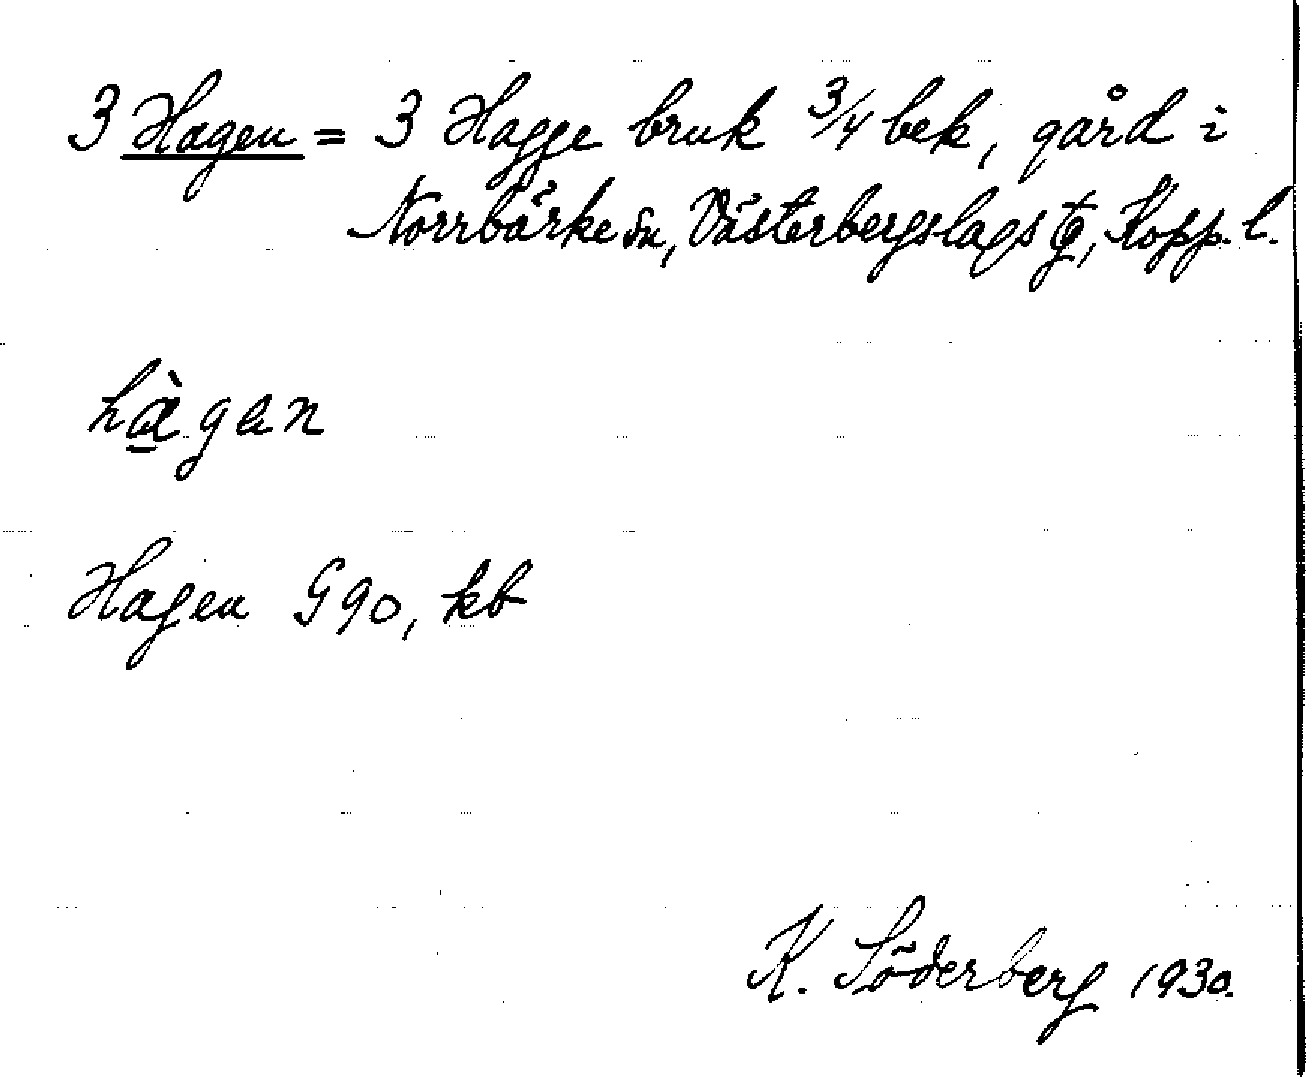 3 Hagen = 3 Hagge bruk 3/4 bek, gård i
Norrbärke sn, Västerbergslags tg, Kopp. l.
hàgen
Hagen G90, kb
K. Söderberg 1930.